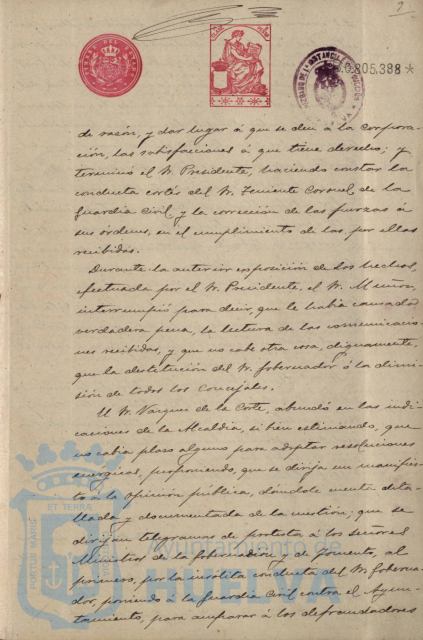 2
0.805.388 *
de razón, y dar lugar á que se den á la Corpora-
ción, las satisfacciones á que tiene derecho; y
terminó el Sr. Presidente, haciendo constar la
conducta cortés del Sr. Teniente Coronel de la
Guardia Civil y la corrección de las fuerzas á
sus órdenes, en el cumplimiento de las, por ellas
recibidas.
Durante la anterior exposición de los hechos,
efectuada por el Sr. Presidente, el Sr. Muñoz,
interrumpió para decir, que le había causado
verdadera pena, la lectura de las comunicacio-
nes recibidas, y que no cabe otra cosa, dignamente,
que la destitución del Sr. Gobernador ó la dimi-
sión de todos los Concejales.
El Sr. Vazquez de la Corte, abundó en las indi-
caciones de la Alcaldía, si bien estimando, que
no cabía plazo alguno para adoptar resoluciones
enérgicas, proponiendo, que se dirija un manifies-
to á la opinión pública, dándole cuenta deta-
llada y documentada de la cuestión; que se
dirijan telegramas de protesta á los señores
Ministros de la Gobernación y de Fomento, al
primero, por la insólita conducta del Sr. Goberna-
dor, poniendo á la Guardia Civil contra el Ayun-
tamiento, para amparar á los defraudadores
PORTUS MARIS
ET TERRA
Ayuntamiento de
HUELVA